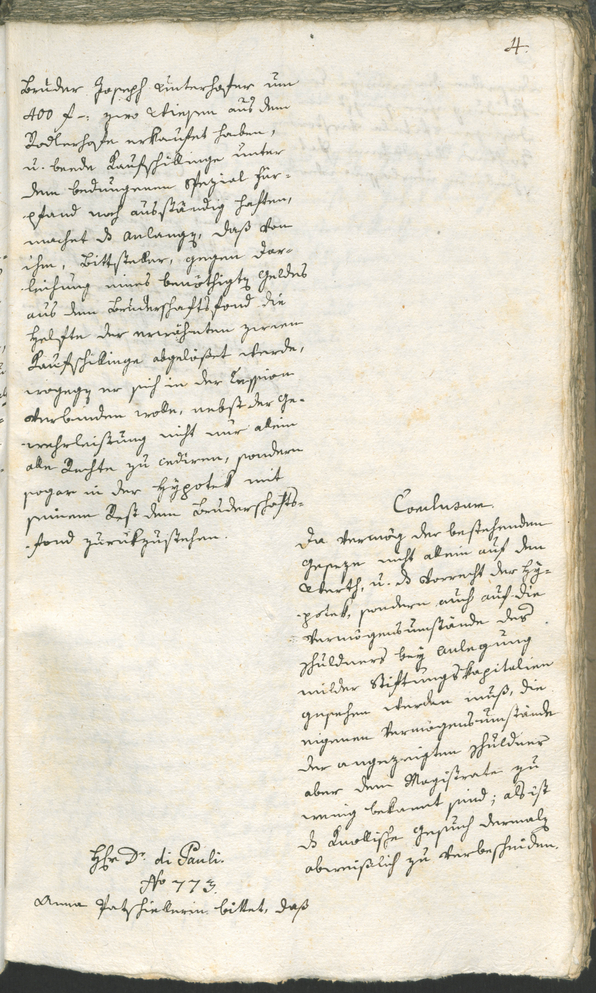 4.
Bruder Joseph Unterhofer um
400 f –: zwo Wiesen aus dem
Rodlerhofe erkaufet haben,
u. beede Kaufschillinge unter
dem bedungenen Spezial Für-
pfand noch ausständig haften,
machet d Anlangen, daß von
ihm, Bittsteller, gegen Dar-
leihung eines benöthigten Geldes
aus dem Bruderschaftsfond die
Helfte der erwähnten zween
Kaufschillinge abgelößet werde,
wogegen er sich in der Cession
verbinden wolle, nebst der Ge-
wehrleistung nicht nur allein
alle Rechte zu cediren, sondern
sogar in der Hypothek mit
seinem Rest dem Bruderschafts-
fond zurückzustehen.
Conclusum
Da vermög der bestehenden
Geseze nicht allein auf den
Werth, u. d Vorrecht der Hy-
pothek, sondern auch auf die
Vermögensumstände des
Schuldners bey Anlegung
milder Stiftungskapitalien
gesehen werden muß, die
eigenen Vermögensumstände
der angezeigten Schuldner
aber dem Magistrate zu
wenig bekannt sind; als ist
d Knollische Gesuch dermalen
abweislich zu verbescheiden.
Hhr Dr. di Pauli.
No 773.
Anna Patschiellerin bittet, daß